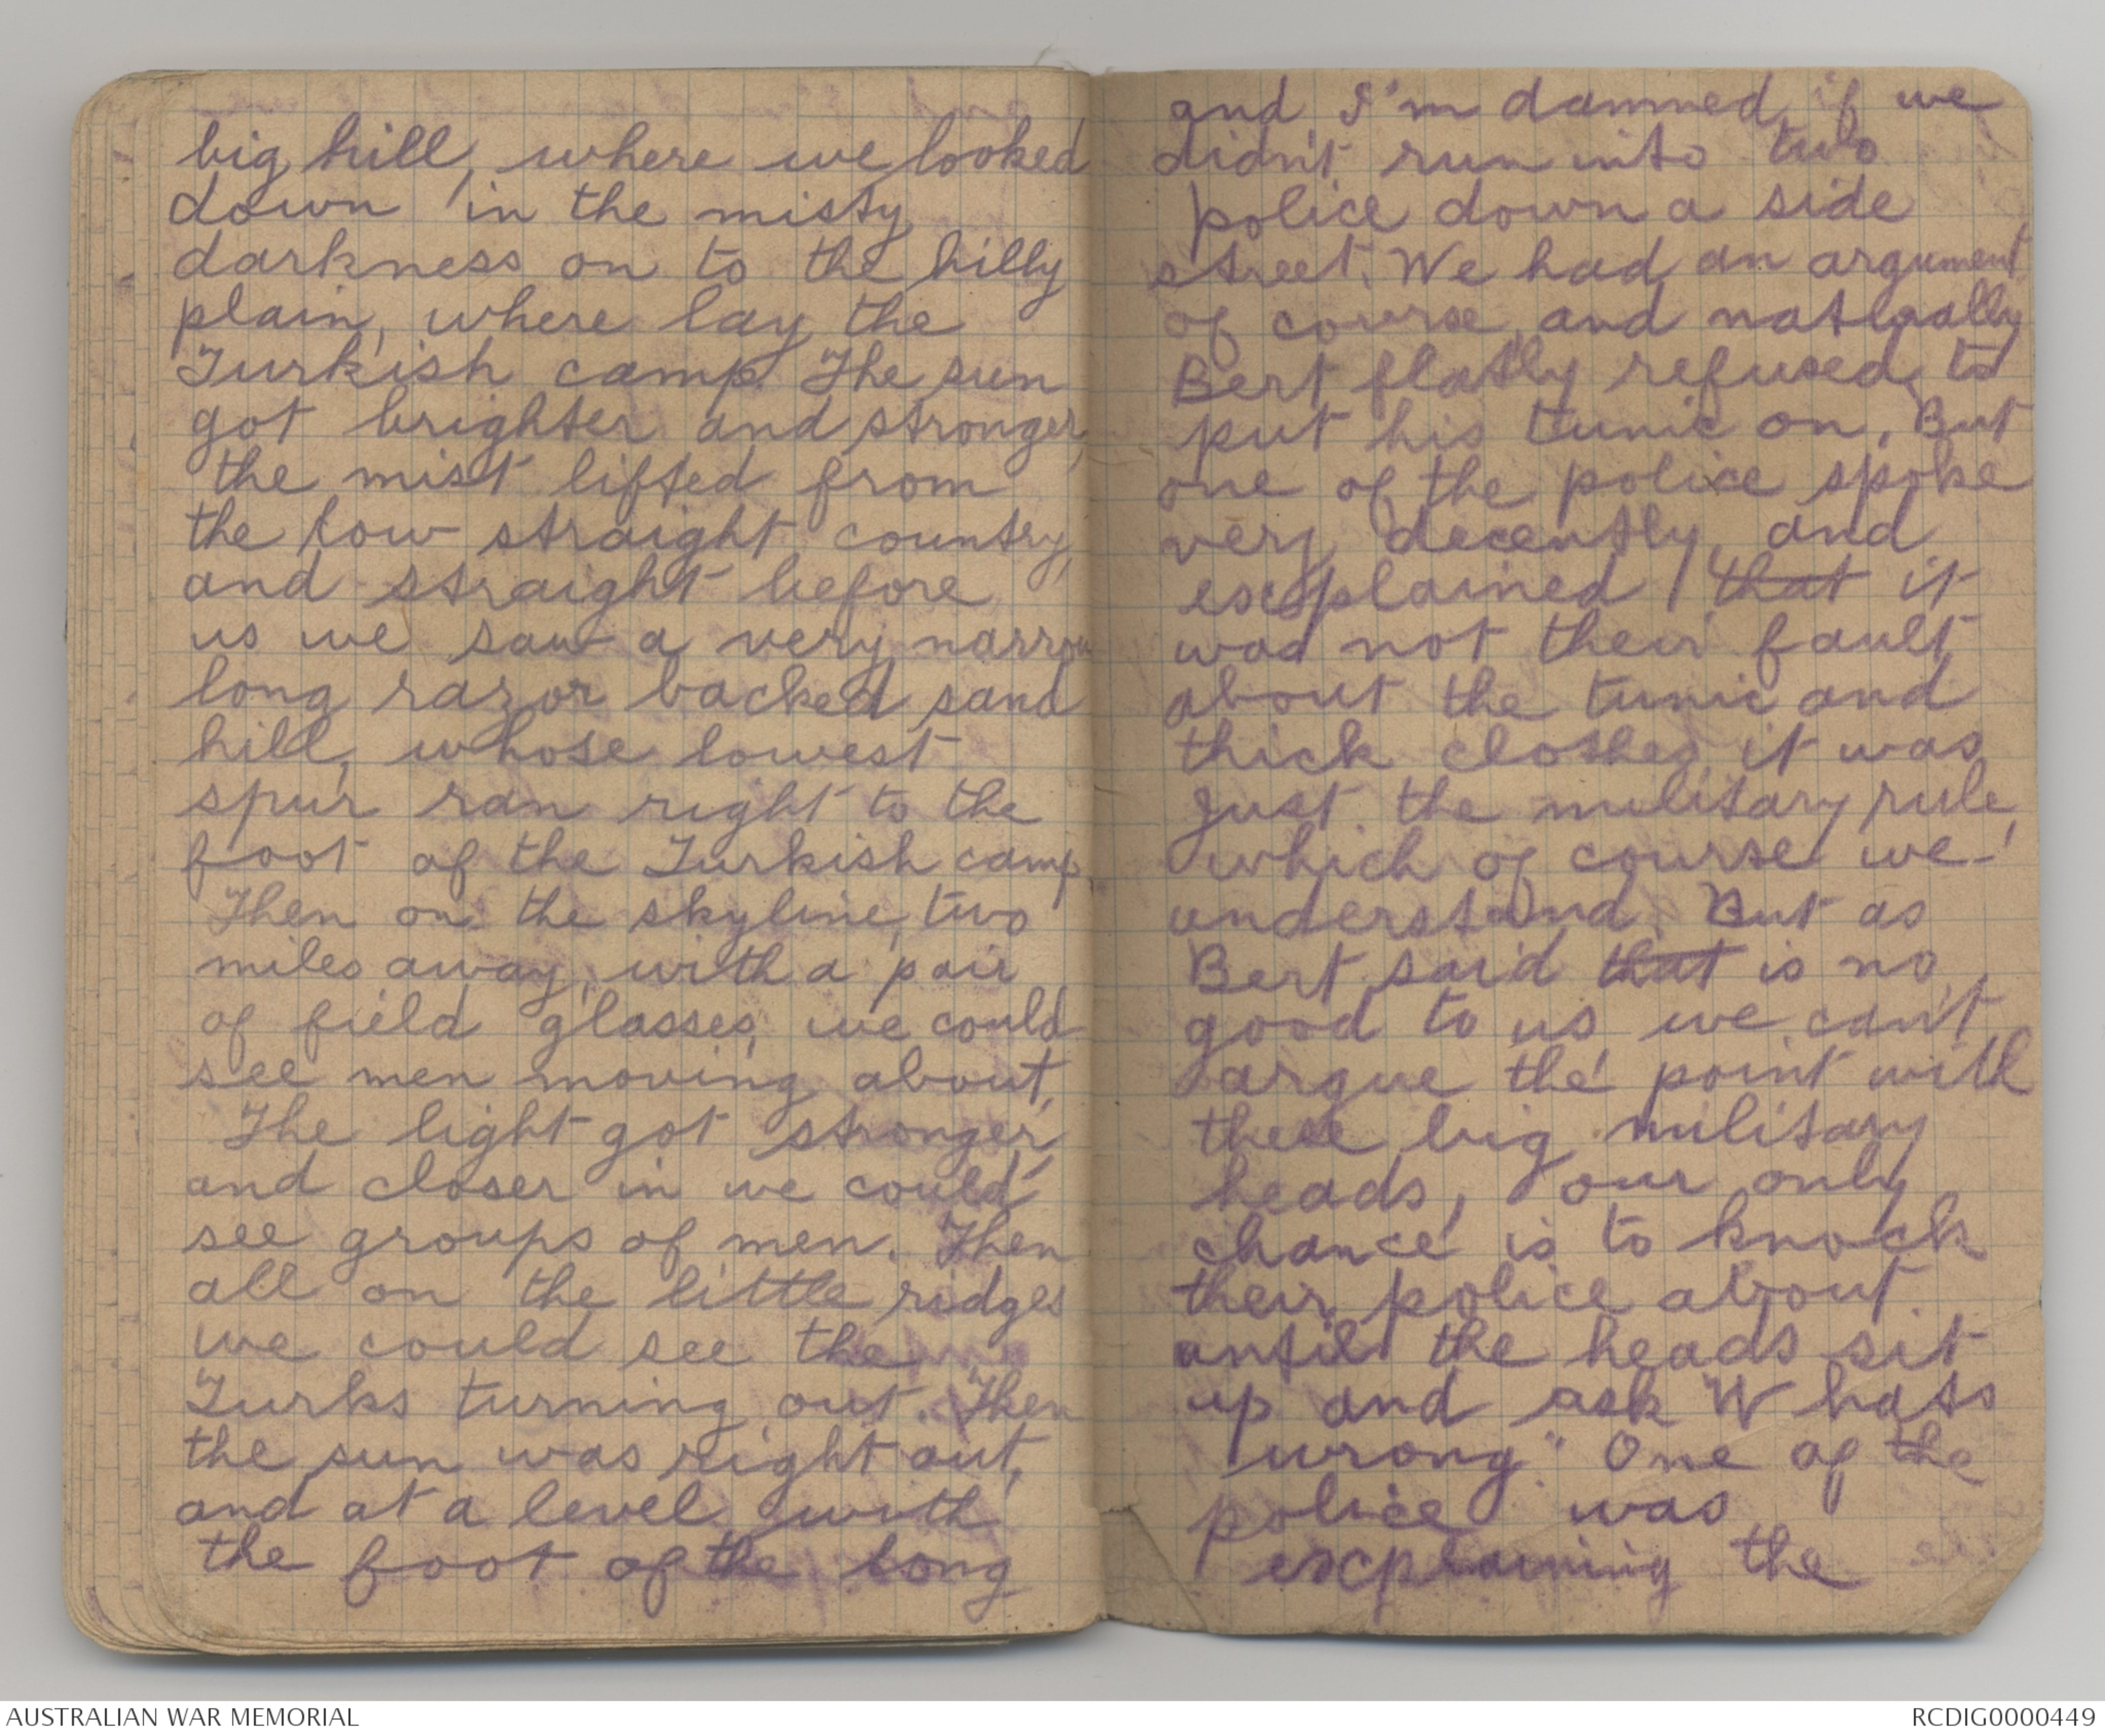 big hill, where we looked
down in the misty
darkness on to the hilly
plain, where lay the
Turkish camp. The sun
got brighter and stronger,
the mist lifted from
the low straight country,
and straight before
us we saw a very narrow
long razor backed sand
hill, whose lowest
spur ran right to the
foot of the Turkish camp
Then on the skyline, two
miles away, with a pair
of field glasses, we could
see men moving about,
The light got stronger,
and closer in we could
see groups of men. Then
all on the little ridges
we could see the
Turks turning out. Then
the sun was right out,
and at a level with
the foot of the long
and I'm damned if we
didn't run into two
police down a side
street. We had an argument
of course, and
Bert flatly refused to
put his tunic on, But
one of the police spoke
very decently, and
explained that it
was not their fault
about the tunic and
thick clothes it was
just the military rule,
which of course we
understand. But as
Bert said that is no
good to us we can't
argue the point with
these big military
heads, our only
chance is to knock
their police about
until the heads sit
up and ask "Whats
wrong" One of the
police was
explaining the
AUSTRALIAN WAR MEMORIAL
RCDIG0000449